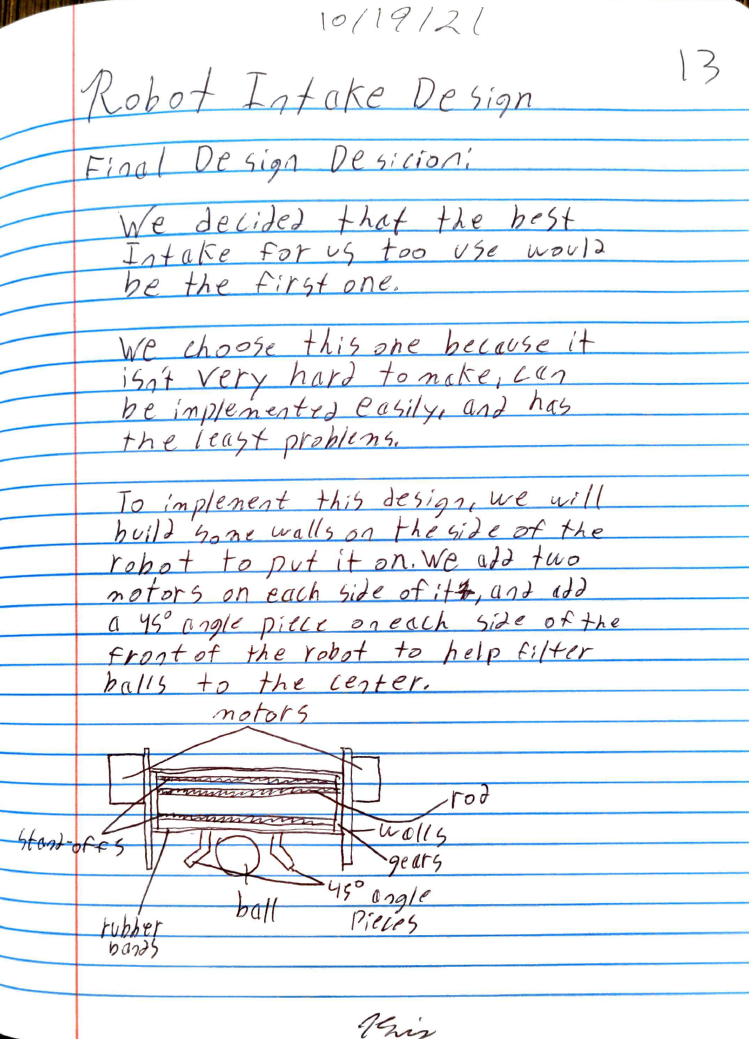 10/19/21
13
Robot Intake Design
Final Design Desicion:
We decided that the best
Intake for us too use would
be the first one.
We choose this one because it
isn't very hard to make, can
be implemented easily, and has
the least problems.
To implement this design, we will
build some walls on the side of the
robot to put it on. We add two
motors on each side of it, and add
a 45° angle piece on each side of the
front of the robot to help filter
balls to the center.
motors
rod
stand-offs
walls
gears
45° angle
pieces
ball
rubber
bands